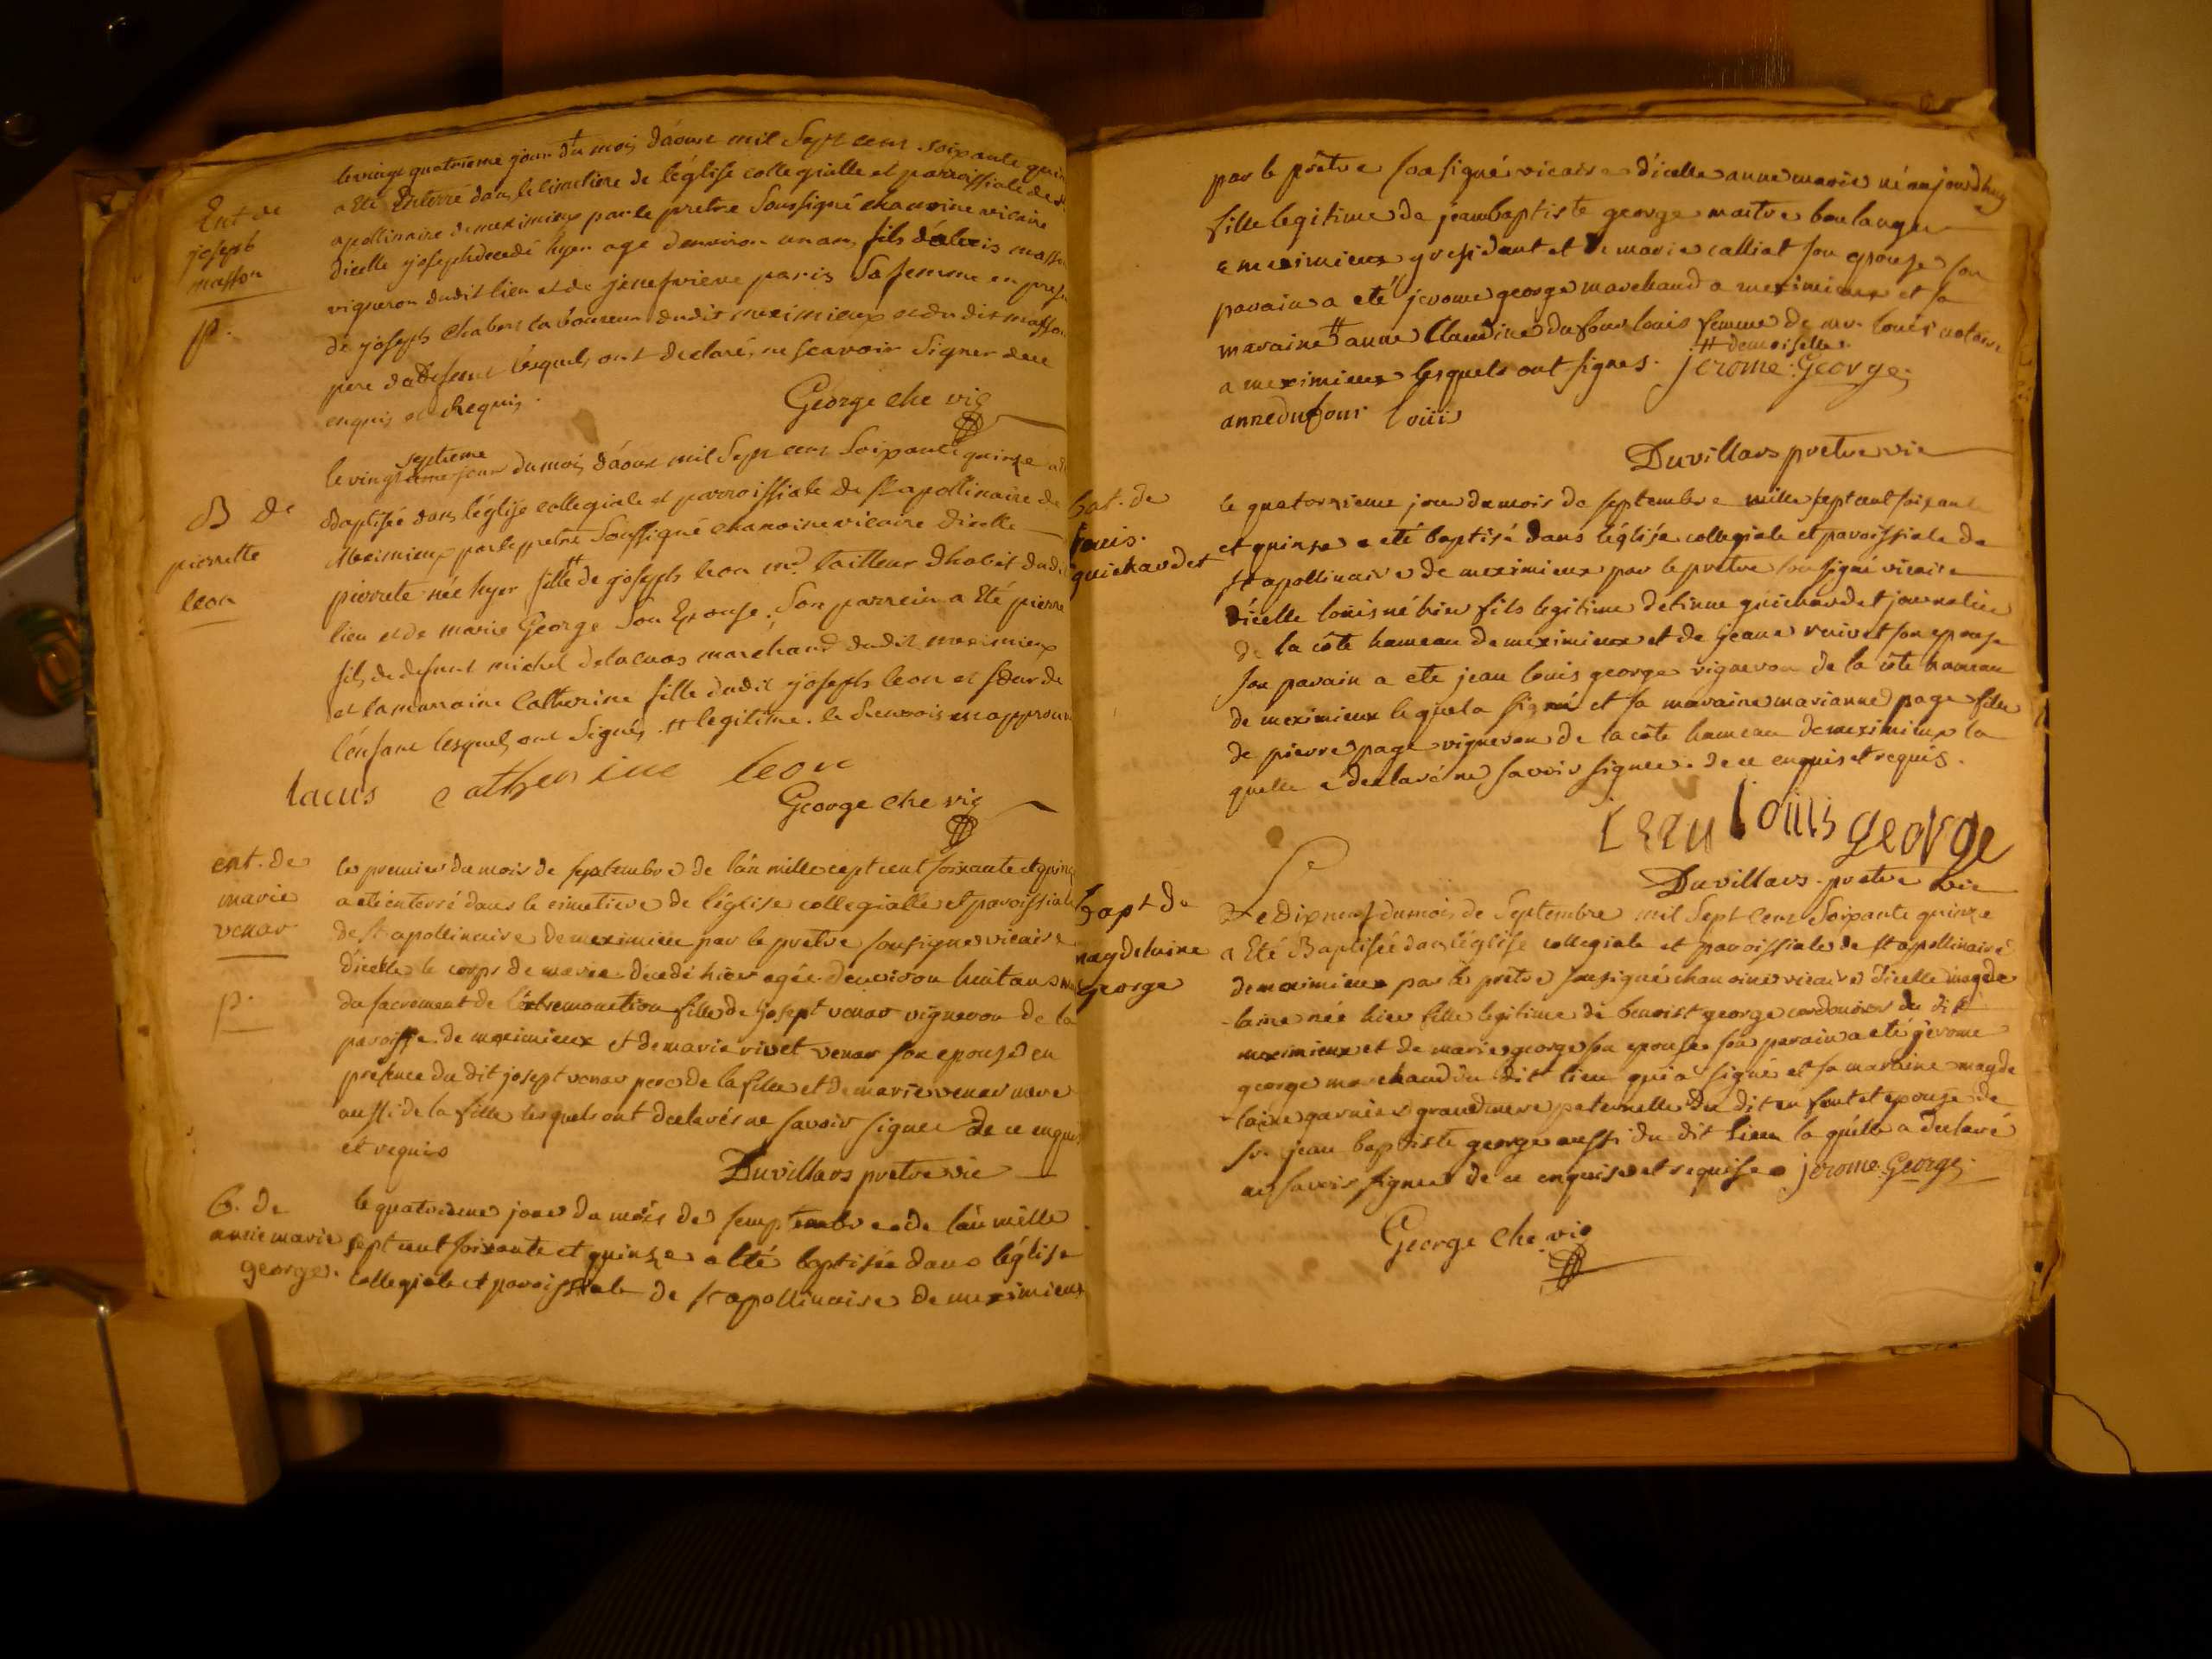 Ent de
joseph
masson
p.
le vingt quatrieme jour du mois d'aoust mil Sept cent soixante quin
a Eté Enterré dans le cimetiere de l'église collegialle et parroissiale de St
apollinaire de meximieux par le pretre Soussigné chanoine vicaire
dicelle joseph decedé hyer agé d'environ un an, fils d'alexis masson
vigneron dudit lieu et de jenefvieve paris Sa femme en prese
de joseph Chabert laboureur dudit meximieux et du dit masson
pere du defunt lesquels ont declaré ne scavoir Signer de ce
enquis et Requis.
George che vic
B de
pierrette
leon
septieme
le vingt jour du mois d'aoust mil Sept cent Soixante quinze a
Baptisée dans l'église collegiale et parroissiale de St apollinaire de
Meximieux par le pretre Soussigné chanoine vicaire dicelle
pierrete née hyer fille # de joseph leon md tailleur d'habit dudi
lieu et de marie George Son Epouse; Son parrein a Eté pierre
fils de defunt michel delacuas marchand dudit meximieux
et la marraine Catherine fille dudit joseph leon et sœur de
l'enfant lesquels ont Signés. # legitime. le Renvois est approuv
lacus catherine leon
George che vic
ent. de
marie
venar
p.
le premier du mois de septembre de l'an mille cept cent soixante et quinze
a eté enterré dans le cimetiere de l'église collegialle et paroissiale
de St apollinaire de meximieu par le pretre sousigné vicaire
dicelle le corps de marie décedé hier agée d'environ huit ans
du sacrement de l'extremonction fille de josept venar vigneron de la
paroisse de meximieux et de marie rivet venar son epouse en
présence du dit josept venar pere de la fille et de marie venar mere
aussi de la fille lesquels ont declarés ne savoir signer de ce enquis
et requis
Duvillars pretre vic
B. de
anne marie
george.
le quatrieme jour du mois de semptembre de l'an mille
sept cent soixante et quinze a eté baptisée dans l'église
collegiale et paroissiale de St apollinaire de meximieux
par le prêtre sousigné vicaire d'icelle anne marie né aujourdhuy
fille legitime de jeanbaptiste george maitre boulanger
a meximieux y residant et de marie calliat son epouse son
parain a eté jerome george marchand a meximieux et sa
maraine # anne Claudine dufour louis femme de mr. louis notaire
# demoiselle.
a meximieux lesquels ont signes. jerome George
anne dufour louis
Duvillars pretre vic
bat. de
louis.
guichardet
le quatorzieme jour du mois de septembre mille sept cent soixante
et quinze a eté baptisé dans l'église collegiale et paroissiale de
St apollinaire de meximieux par le pretre sousigné vicaire
dicelle louis né hier fils legitime detinne guichardet journalier
de la côte hameau de meximieux et de jeane rivet son epouse
son parain a ete jean louis george vigneron de la côte hameau
de meximieux lequel a signé et sa maraine marianne page fille
de pierre page vigneron de la côte hameau de meximieux la
quelle a declaré ne savoir signer. de ce enquis et requis.
iean louis george
Duvillars pretre vic
bapt de
magdelaine
george
Le dixneuf du mois de Septembre mil Sept Cent Soixante quinze
a Eté Baptisée dans l'église collegiale et paroissiale de St apollinaire
de meximieux par le prêtre sousigné chanoine vicaire dicelle magde
-laine née hier fille legitime de benoist george cordonier du dit
meximieux et de marie george son epouse son parain a eté jerome
george marchand du dit lieu qui a signé et sa maraine magde
-laine garnier grand mere paternelle du dit enfant et epouse de
sr. jean baptiste george aussi du dit lieu laquelle a declaré
ne savoir signer de ce enquise et requise. jerome George
George Che. vic